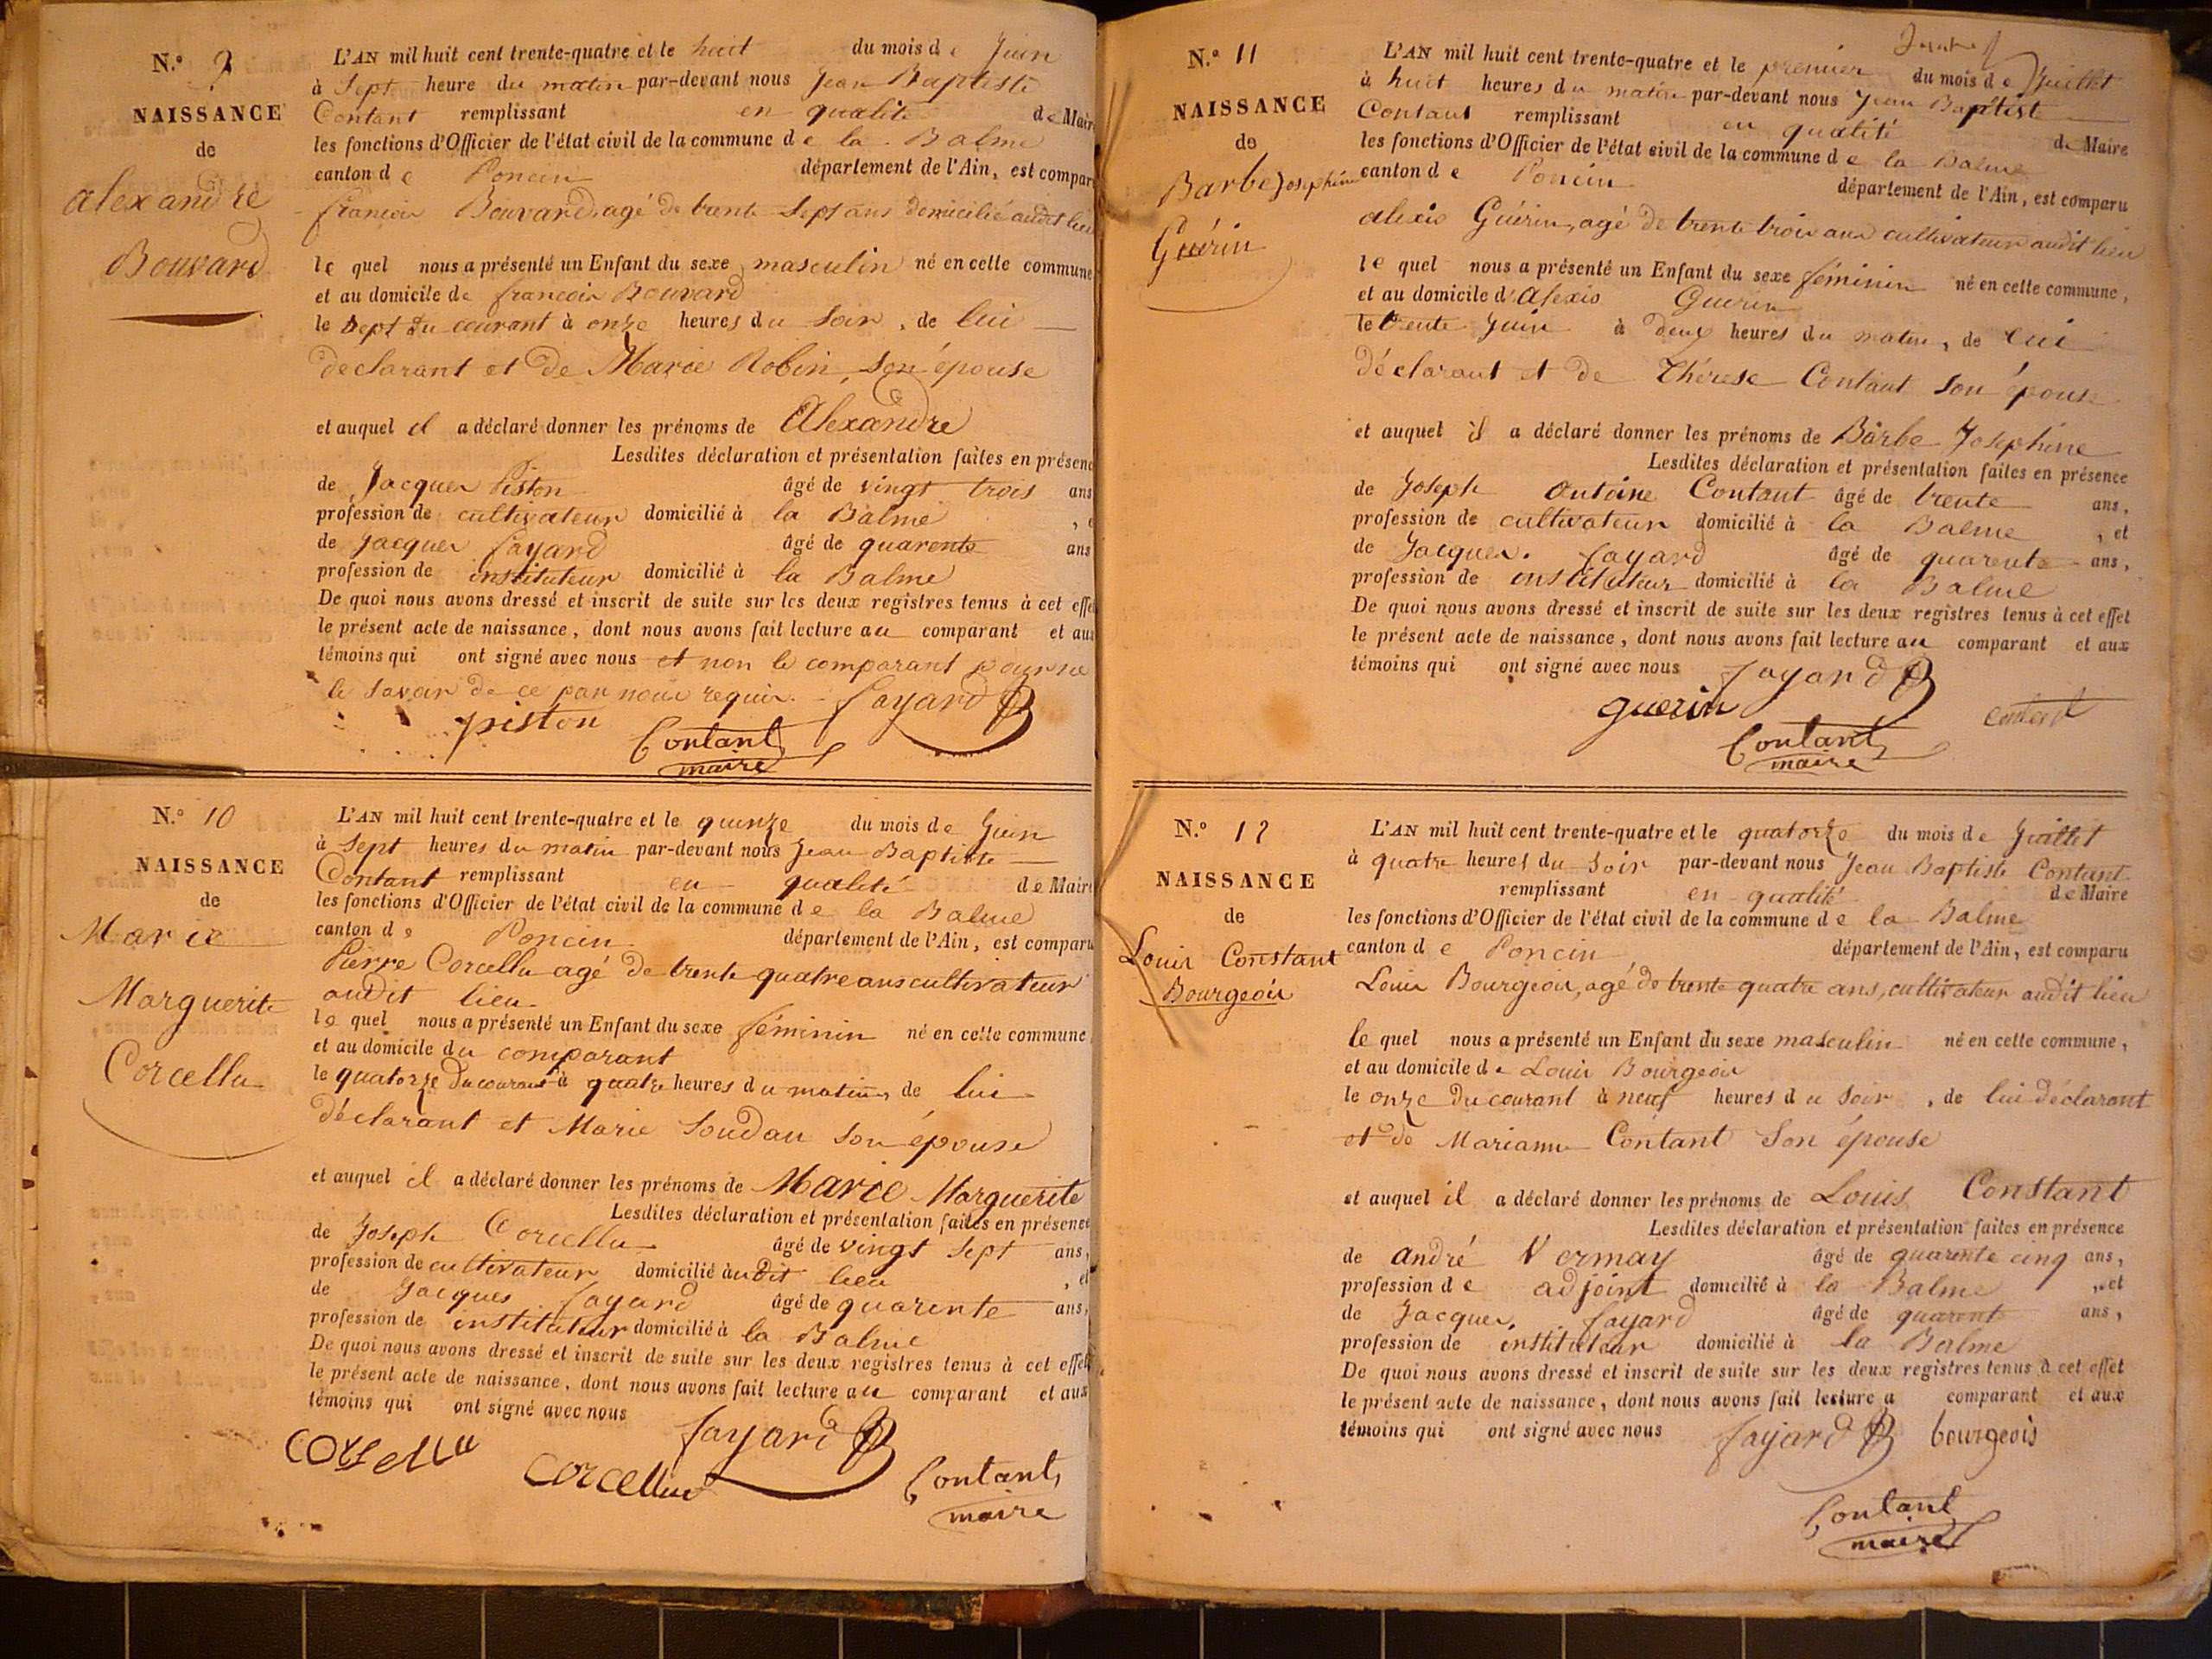 N.o 9
NAISSANCE
de
alexandre
Bouvard
L'AN mil huit cent trente-quatre et le huit du mois de Juin
à Sept heure du matin par-devant nous Jean Baptiste
Contant remplissant en qualité de Maire
les fonctions d'Officier de l'état civil de la commune de la Balme
canton de Poncin département de l'Ain, est compar
francois Bouvard, agé de trente Sept ans domicilié audit lieu
le quel nous a présenté un Enfant du sexe masculin né en celle commune
et au domicile de francois Bouvard
le Sept du courant à onze heures du Soir, de lui
declarant et de Marie Robin, son épouse
et auquel il a déclaré donner les prénoms de Alexandre
Lesdites déclaration et présentation faites en présenc
de Jacques Piston âgé de vingt trois ans
profession de cultivateur domicilié à la Balme
de Jacques fayard âgé de quarente ans
profession de instituteur domicilié à la Balme
De quoi nous avons dressé et inscrit de suite sur les deux registres tenus à cet effet
le présent acte de naissance, dont nous avons fait lecture au comparant et aux
témoins qui ont signé avec nous et non le comparant pour ne
le savoir de ce par nous requis. fayard
piston
Contant
maire
N.o 10
NAISSANCE
de
Marie
Marguerite
Corcellu
L'AN mil huit cent trente-quatre et le quinze du mois de Juin
à Sept heures du matin par-devant nous Jean Baptiste
Contant remplissant en qualité de Maire
les fonctions d'Officier de l'état civil de la commune de la Balme
canton de Poncin département de l'Ain, est comparu
Pierre Corcellu agé de trente quatre ans cultivateur
audit lieu
le quel nous a présenté un Enfant du sexe féminin né en celle commune
et au domicile du comparant
le quatorze du courant à quatre heures du matin, de lui
déclarant et Marie Soudan son épouse
et auquel il a déclaré donner les prénoms de Marie Marguerite
Lesdites déclaration et présentation faites en présence
de Joseph Corcellu âgé de vingt Sept ans,
profession de cultivateur domicilié audit lieu , et
de Jacques fayard âgé de quarente ans,
profession de instituteur domicilié à la Balme
De quoi nous avons dressé et inscrit de suite sur les deux registres tenus à cet effet
le présent acte de naissance, dont nous avons fait lecture au comparant et aux
témoins qui ont signé avec nous
fayard
corcellu
Contant
maire
N.o 11
NAISSANCE
de
Barbe Josephine
Guérin
L'AN mil huit cent trente-quatre et le premier du mois de Juillet
à huit heures du matin par-devant nous Jean Baptiste
Contant remplissant en qualité de Maire
les fonctions d'Officier de l'état civil de la commune de la Balme
canton de Poncin département de l'Ain, est comparu
alexis Guérin, agé de trente trois ans cultivateur audit lieu
le quel nous a présenté un Enfant du sexe féminin né en celle commune,
et au domicile d'Alexis Guerin
le trente Juin à deux heures du matin, de lui
déclarant et de Thérese Contant son épouse
et auquel il a déclaré donner les prénoms de Barbe Josephine
Lesdites déclaration et présentation faites en présence
de Joseph Antoine Contant âgé de trente ans,
profession de cultivateur domicilié à la Balme , et
de Jacques fayard âgé de quarente ans,
profession de instituteur domicilié à la Balme
De quoi nous avons dressé et inscrit de suite sur les deux registres tenus à cet effet
le présent acte de naissance, dont nous avons fait lecture au comparant et aux
témoins qui ont signé avec nous fayard
guerin
Contant
maire
N.o 12
NAISSANCE
de
Louis Constant
Bourgeois
L'AN mil huit cent trente-quatre et le quatorze du mois de Juillet
à quatre heures du Soir par-devant nous Jean Baptiste Contant
remplissant en qualité de Maire
les fonctions d'Officier de l'état civil de la commune de la Balme
canton de Poncin département de l'Ain, est comparu
Louis Bourgeois, agé de trente quatre ans, cultivateur audit lieu
le quel nous a présenté un Enfant du sexe masculin né en celle commune,
et au domicile de Louis Bourgeois
le onze du courant à neuf heures du soir, de lui déclarant
et de Marianne Contant Son épouse
et auquel il a déclaré donner les prénoms de Louis Constant
Lesdites déclaration et présentation faites en présence
de andré Vermay âgé de quarente cinq ans,
profession de adjoint domicilié à la Balme , et
de Jacques fayard âgé de quarente ans,
profession de instituteur domicilié à la Balme
De quoi nous avons dressé et inscrit de suite sur les deux registres tenus à cet effet
le présent acte de naissance, dont nous avons fait lecture a comparant et aux
témoins qui ont signé avec nous fayard bourgeois
Contant
maire